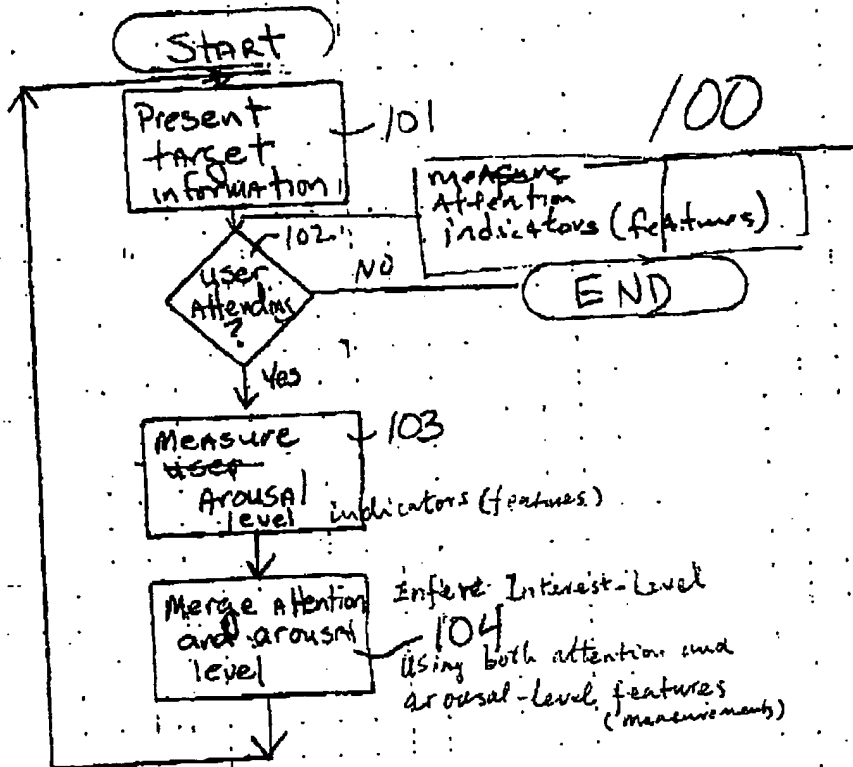 START
Present
target
information
101
100
measure
Attention
indicators (features)
102
user
Attending
?
NO
END
Yes
Measure
user
Arousal
level
indicators (features)
103
Merge Attention
and arousal
level
104
Interest-Level
Using both attention and
arousal-level features
(measurements)